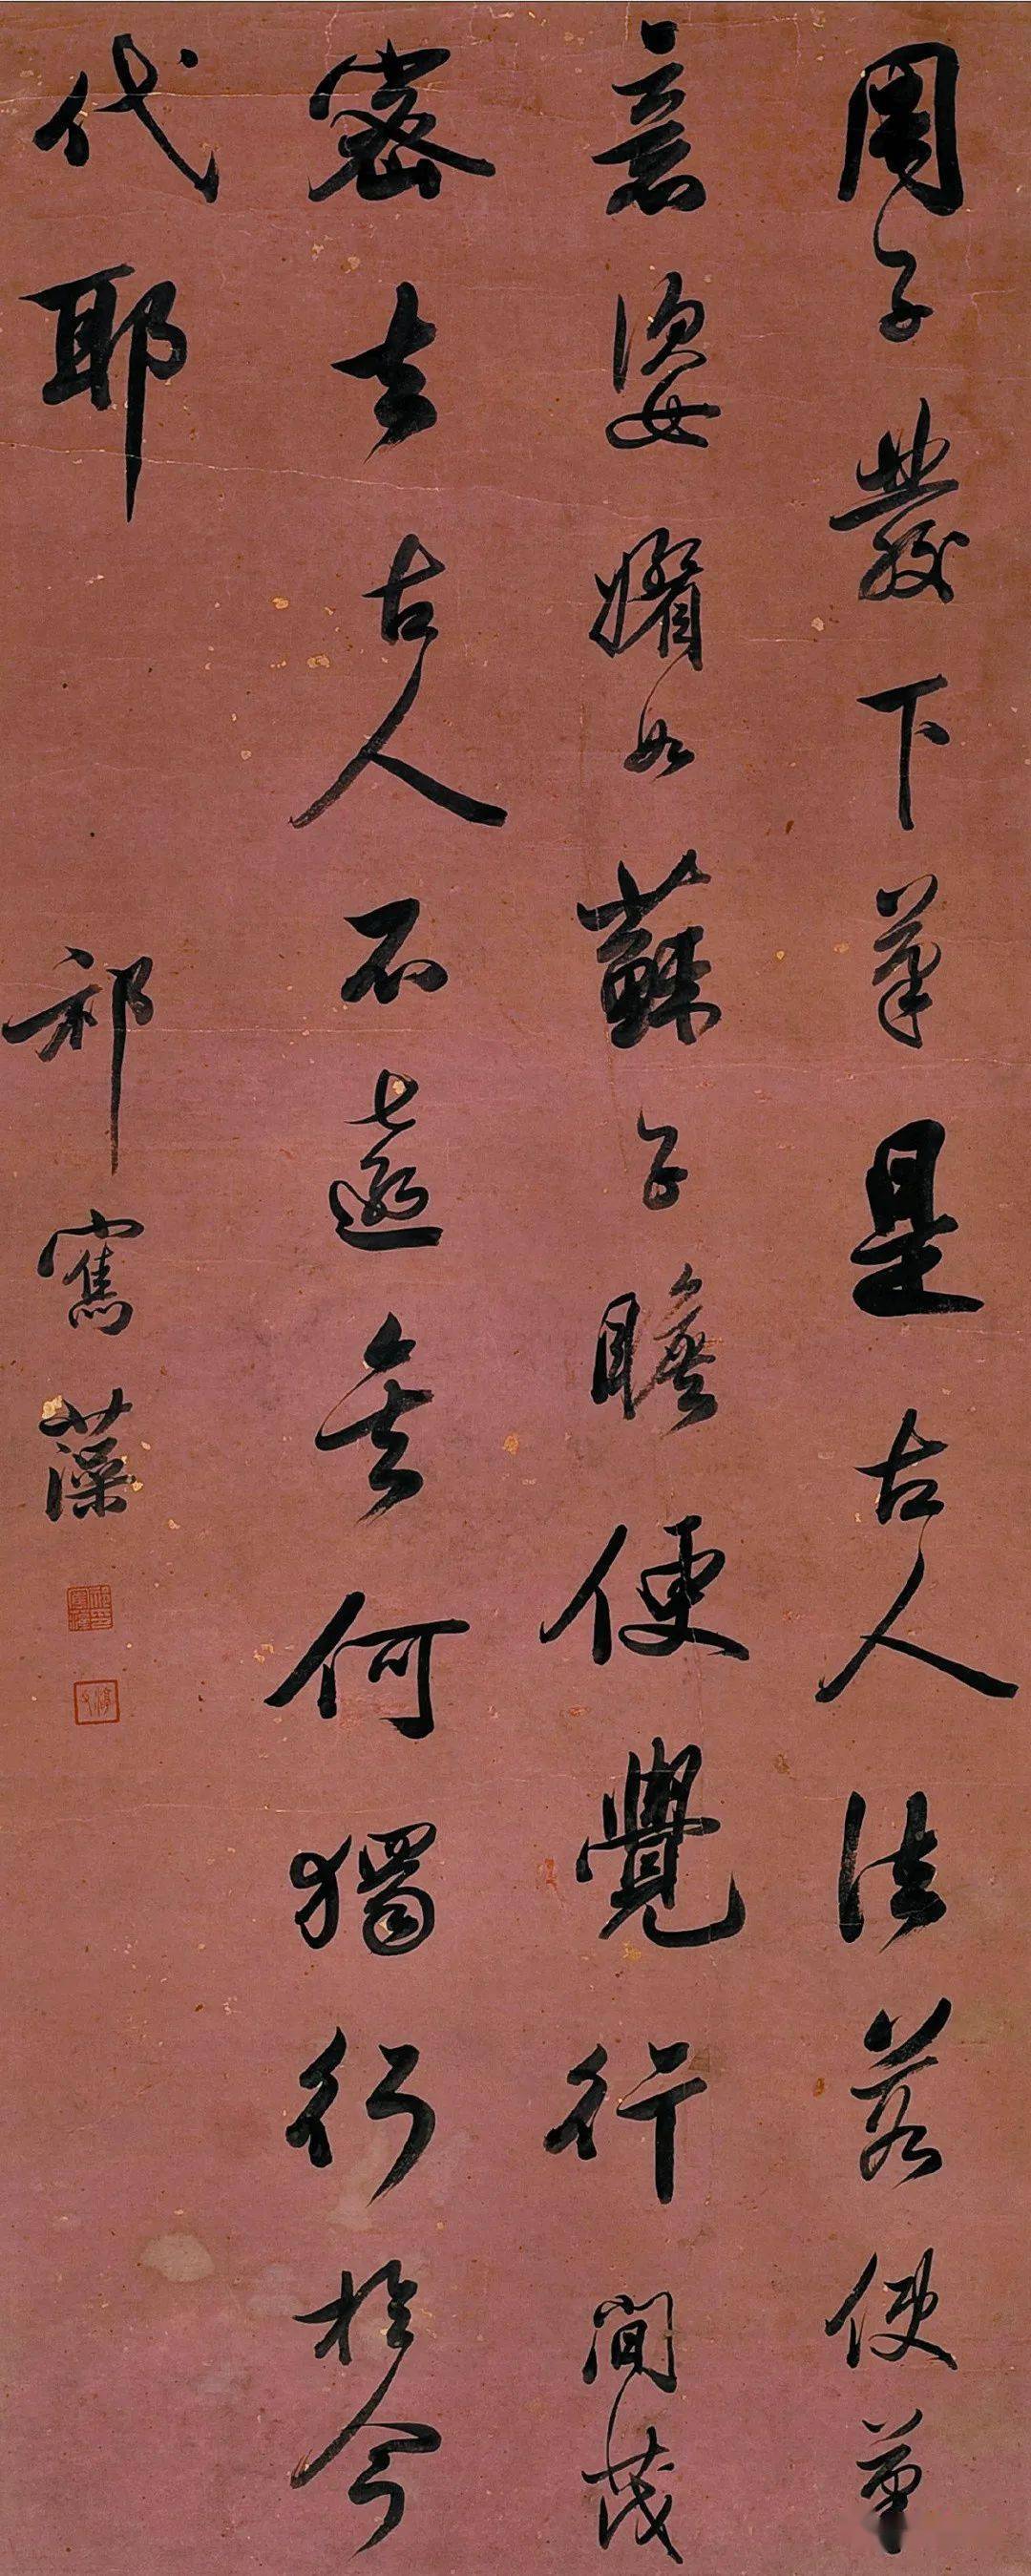 周子發下筆是古人法若使筆
意姿媚如蘇子瞻便覺行間茂
密去古人不遠矣何獨行於今
代耶
祁寯藻